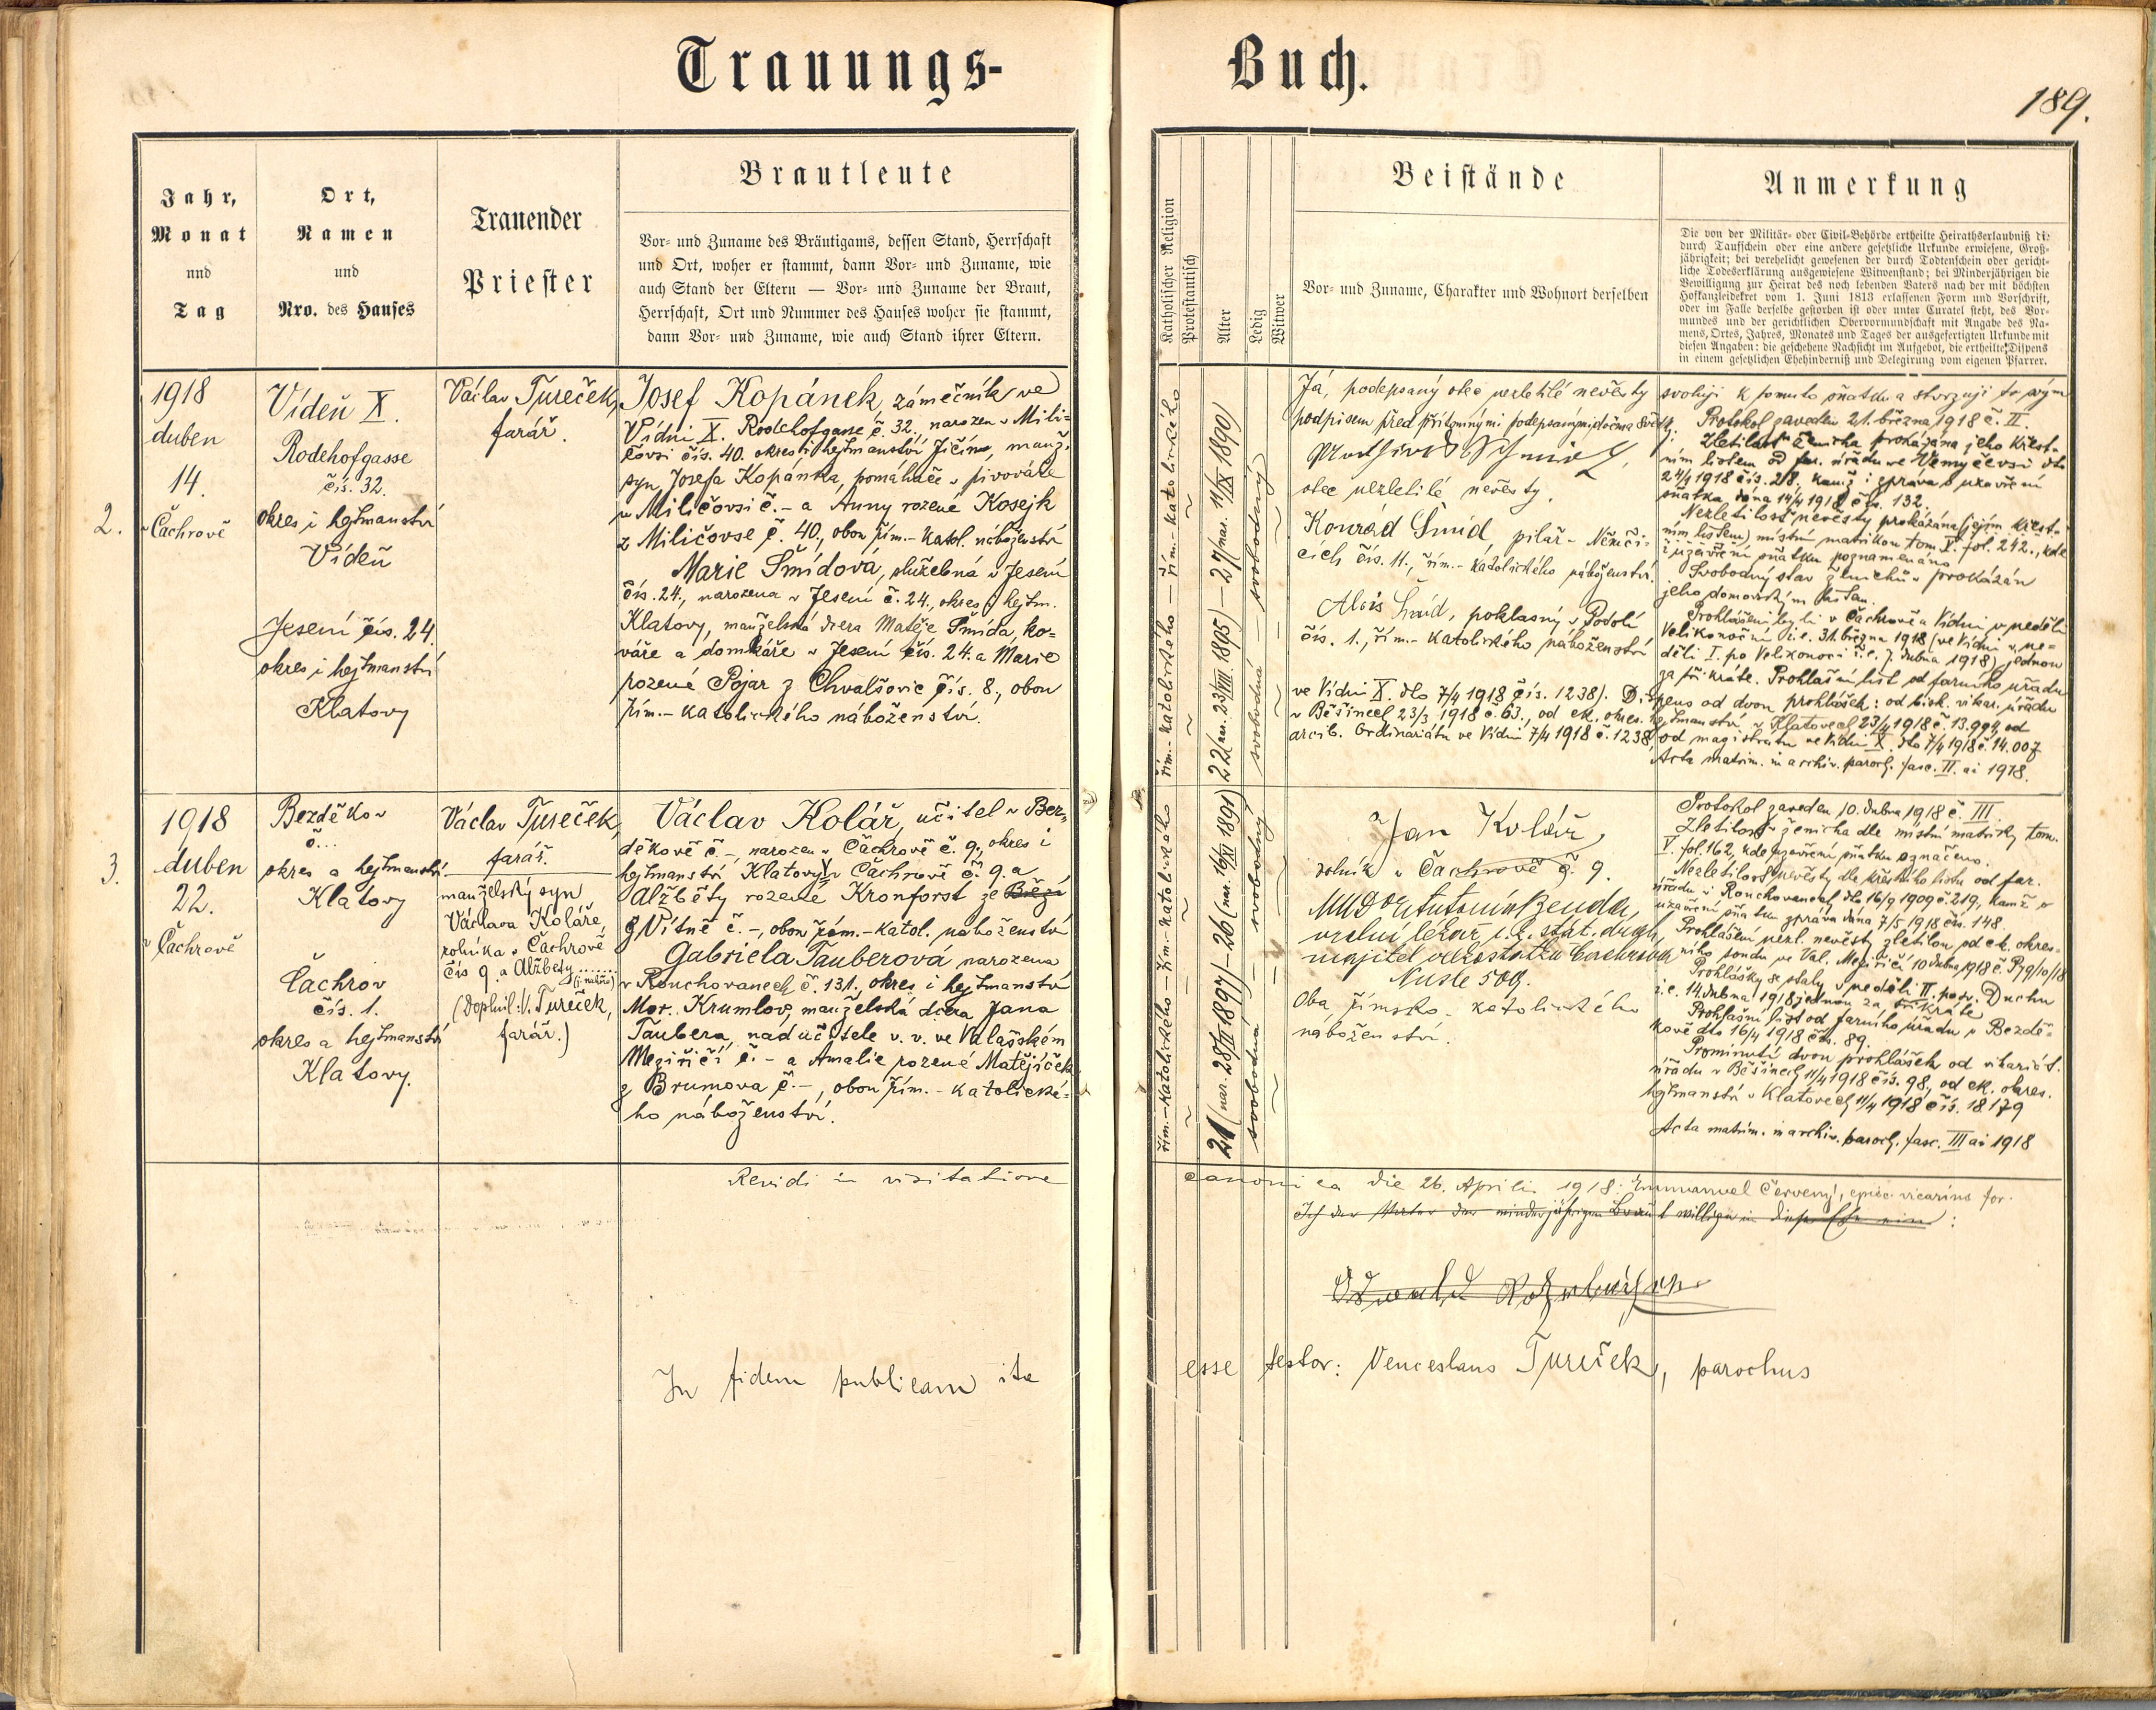 Trauungs-
Buch.
189.
Jahr,
Monat
und
Tag
Ort,
Namen
und
Nro. des Hauses
Trauender
Priester
Brautleute
Vor- und Zuname des Bräutigams, dessen Stand, Herrschaft
und Ort, woher er stammt, dann Vor- und Zuname, wie
auch Stand der Eltern — Vor- und Zuname der Braut,
Herrschaft, Ort und Nummer des Hauses woher sie stammt,
dann Vor- und Zuname, wie auch Stand ihrer Eltern.
Katholischer Religion
Protestantisch
Alter
Ledig
Witwer
Beistände
Vor- und Zuname, Charakter und Wohnort derselben
Anmerkung
Die von der Militär- oder Civil-Behörde ertheilte Heirathserlaubniß di
durch Taufschein oder eine andere gesetzliche Urkunde erwiesene, Groß-
jährigkeit; bei verehelicht gewesenen der durch Todtenschein oder gericht-
liche Todeserklärung ausgewiesene Witwenstand; bei Minderjährigen die
Bewilligung zur Heirat des noch lebenden Vaters nach der mit höchsten
Hofkanzleidekret vom 1. Juni 1813 erlassenen Form und Vorschrift,
oder im Falle derselbe gestorben ist oder unter Curatel steht, des Vor-
mundes und der gerichtlichen Obervormundschaft mit Angabe des Na-
mens, Ortes, Jahres, Monates und Tages der ausgefertigten Urkunde mit
diesen Angaben: die geschehene Nachsicht im Aufgebot, die ertheilte Dispens
in einem gesetzlichen Ehehinderniß und Delegirung vom eigenen Pfarrer.
2.
1918
duben
14.
v Čachrově
Vídeň X.
Rodehofgasse
čís. 32.
okres i hejtmanství
Vídeň
Jesení čís. 24.
okres i hejtmanství
Klatovy
Václav Tureček,
farář.
Josef Kopánek, zámečník ve
Vídni X. Rodehofgasse č. 32., narozen v Mili-
čovsi čís. 40. okres i hejtmanství Jičín, manž.
syn Josefa Kopánka, pomahače v pivováře
v Miličovsi č. - a Anny rozené Kosejk
z Miličovse č. 40., obou řím.- katol. náboženství
Marie Šmídová, služebná v Jesení
čís. 24., narozena v Jesení č. 24., okres i hejtm.
Klatovy, manželská dcera Matěje Šmída, ko-
váře a domkáře v Jesení čís. 24. a Marie
rozené Pojar z Chvalšovic čís. 8., obou
řím.- katolického náboženství.
řím.-katolického — řím.-katolického
22 (nar. 23/VIII. 1895) — 27 (nar. 11/IX 1890)
svobodná — svobodný
Já, podepsaný otec nezletilé nevěsty
podpisem před přítomnými podepsanými dvěma svědky:
otec nezletilé nevěsty.
Konrád Šmíd, pilař v Němči-
cích čís. 11., řím.- katolického náboženství.
Alois Šmíd, poklasný v Podolí
čís. 1., řím.- katolického náboženství
ve Vídni X. dto 7/4 1918 čís. 1238). Dis
v Běšinech 23/3 1918 č. 63., od ck. okres. he
arcib. Ordinariátu ve Vídni 7/4 1918 č. 1238,
svoluji k tomuto sňatku a stvrzuji to svým
Protokol zaveden 21. března 1918 č. II.
Zletilost ženicha prokázána jeho křest-
ním listem od far. úřadu ve Vemyčevsi dto
24/4 1918 čís. 28., kamž i zpráva o uzavření
sňatku dána 14/4 1918 čís. 132.
Nezletilost nevěsty prokázána (jejím křest-
ním listem) místní matrikou tom X. fol. 242., kde
i uzavření sňatku poznamenáno
Svobodný stav ženichův prokázán
jeho domovským listem.
Prohlášeni byli v Čachrově a Vídni v neděli
Velikonoční t.j. 31. března 1918 (ve Vídni v ne-
děli I. po Velikonoci t.j. 7. dubna 1918) jednou
za tři kráte. Prohlašní list od farního úřadu
pens od dvou prohlášek: od bisk. vikar. úřadu
jtmanství v Klatovech 23/4 1918 č. 13.994, od
od magistrátu ve Vídni X. dto 7/4 1918 č. 14.007
Acta matrim. in archiv. paroch. fasc. II. ai 1918.
3.
1918
duben
22.
v Čachrově
Bezděkov
č...
okres a hejtmanství
Klatovy
Čachrov
čís. 1.
okres a hejtmanství
Klatovy.
Václav Tureček,
farář.
manželský syn
Václava Koláře,
rolníka v Čachrově
čís 9 a Alžběty ......
(Doplnil: V. Tureček,
farář.)
Václav Kolář, učitel v Bez-
děkově č. -, narozen v Čachrově č. 9, okres i
hejtmanství Klatovy V Čachrově č. 9. a
Alžběty rozené Kronforst ze
z Vítně č. -, obou řím.- katol. náboženství
Gabriela Tauberová narozena
v Rouchovanech č. 131., okres i hejtmanství
Mor. Krumlov, manželská dcera Jana
Taubera, nadučitele v. v. ve Valašském
Meziříčí č. - a Amalie rozené Matějíček
z Brumova č. -, obou řím. - katolické-
ho náboženství.
řím.-katolického — řím.-katolického
21 (nar. 28/III 1897) — 26 (nar. 16/XI 1891)
svobodná — svobodný
Jan Kolář,
rolník v Čachrově č. 9.
MUDr Antonín Benda,
vrchní lékař c.k. stát. drah,
majitel velkostatku Čachrova
Nusle 509.
Oba římsko - katolického
náboženství.
Protokol zaveden 10. dubna 1918 č. III.
Zletilost ženicha dle místní matriky tom.
V. fol. 162, kde uzavření sňatku označeno.
Nezletilost nevěsty dle křestního listu od far.
úřadu v Rouchovanech dto 16/9 1909 č. 219, kamž o
uzavření sňatku zpráva dána 7/5 1918 čís. 148.
Prohlášení nezl. nevěsty zletilou od ck. okres-
ního soudu ve Val. Meziříčí 10 dubna 1918 č. P 79/10/18
Prohlášky se staly v neděli II. po sv. Duchu
t.j. 14. dubna 1918 jednou za třikráte
Prohlašní list od farního úřadu v Bezdě-
kově dto 16/4 1918 čís. 89.
Prominutí dvou prohlášek od vikariát.
úřadu v Běšinech 11/4 1918 čís. 98., od ck. okres.
hejtmanství v Klatovech 11/4 1918 čís. 18179
Acta matrim. in archiv. paroch. fasc. III ai 1918
Revidi in visitatione
canonica die 26. Aprilis 1918. Emmanuel Červený, episc. vicarius for.
Ich der Vater der minderjährigen Braut willige in diese Ehe ein:
In fidem publicam ita
esse testor: Venceslaus Tureček, parochus